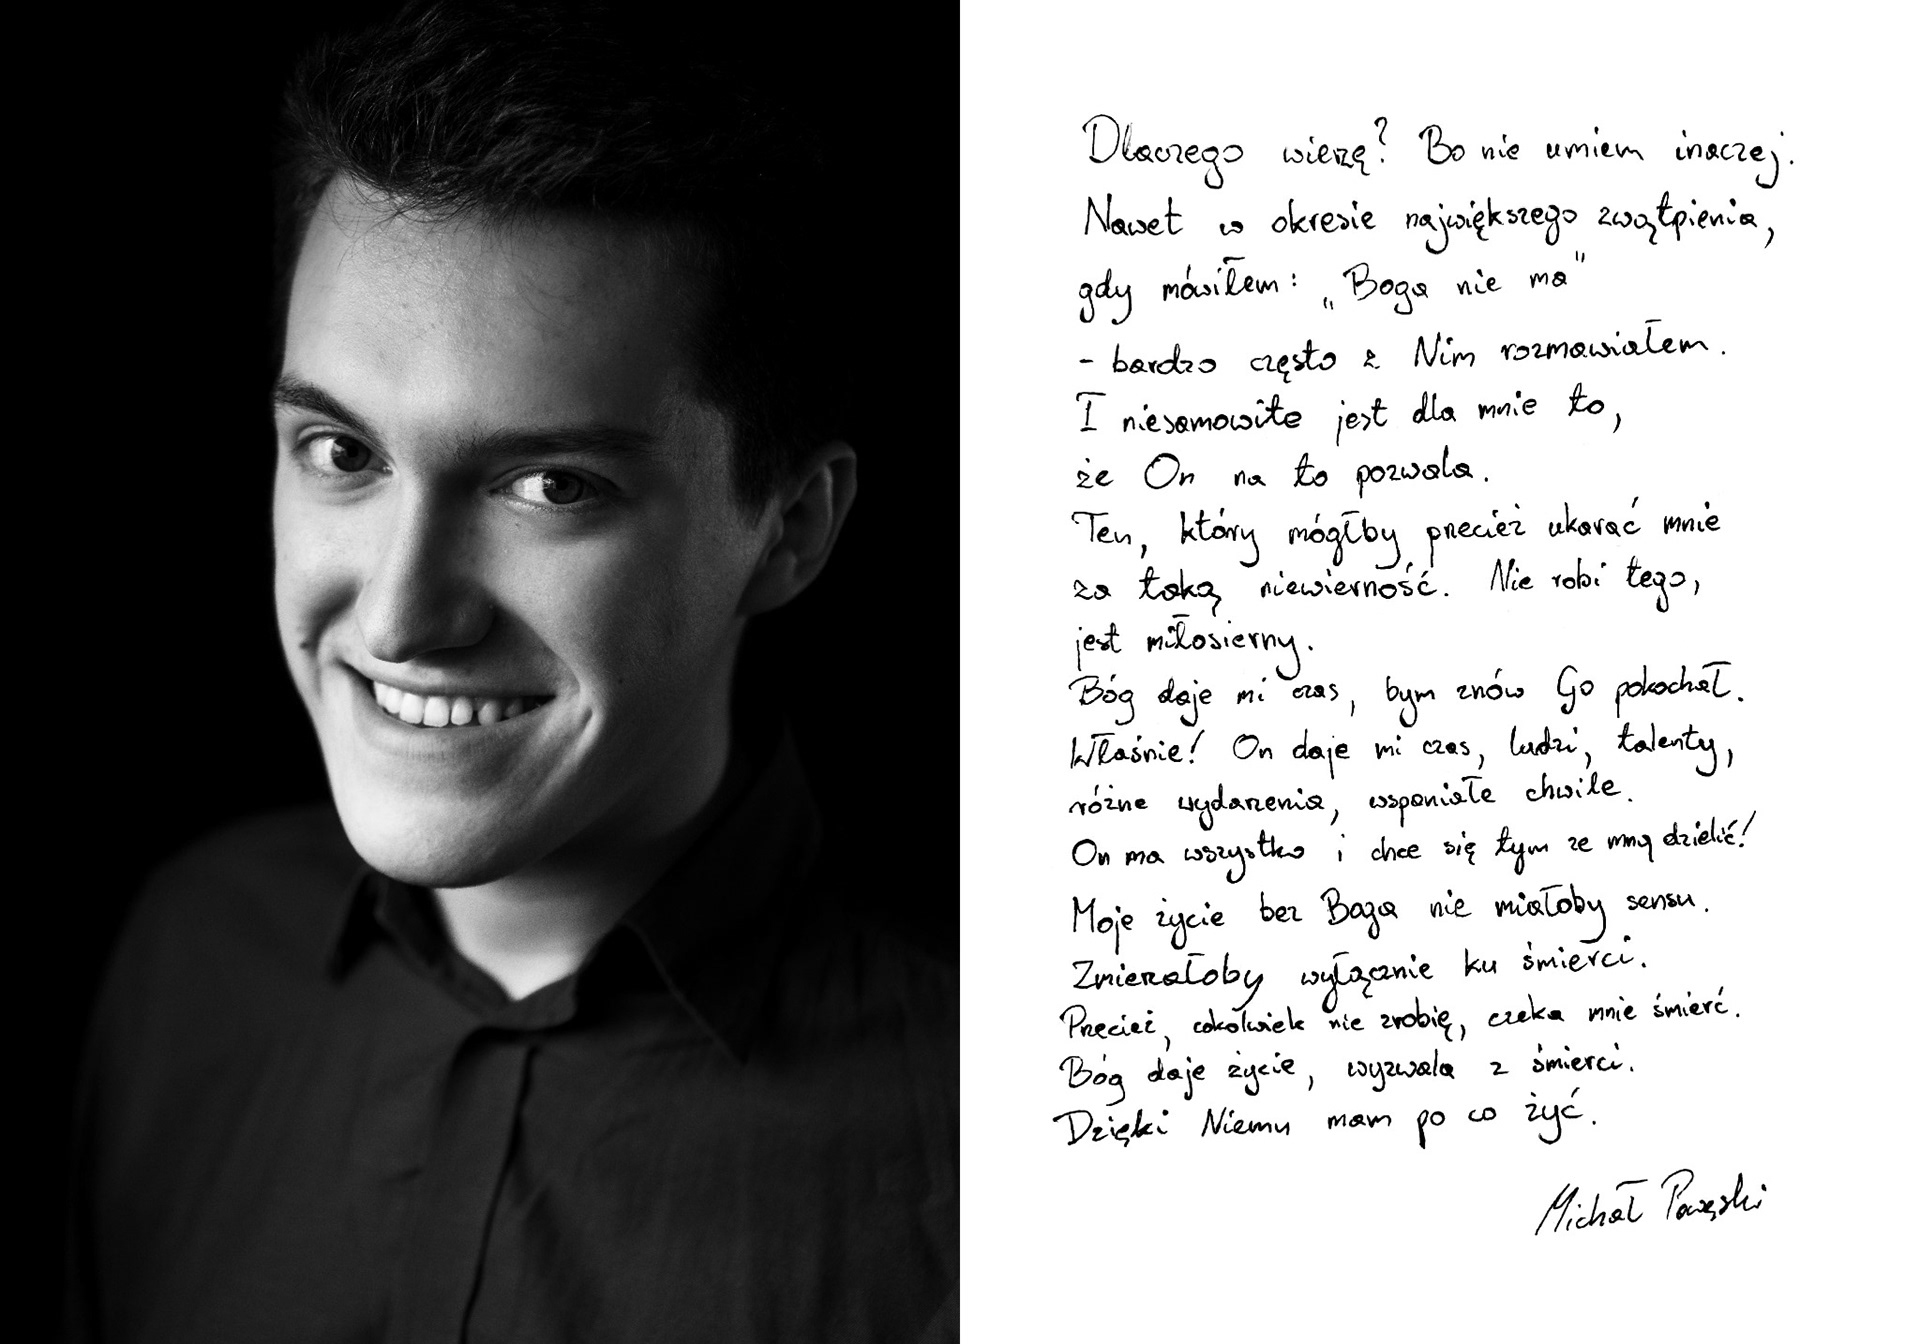 Dlaczego wierzę? Bo nie umiem inaczej.
Nawet w okresie największego zwątpienia,
gdy mówiłem: „Boga nie ma"
- bardzo często z Nim rozmawiałem.
I niesamowite jest dla mnie to,
że On na to pozwala.
Ten, który mógłby przecież ukarać mnie
za taką niewierność. Nie robi tego,
jest miłosierny.
Bóg daje mi czas, bym znów Go pokochał.
Właśnie! On daje mi czas, ludzi, talenty,
różne wydarzenia, wspaniałe chwile.
On ma wszystko i chce się tym ze mną dzielić!
Moje życie bez Boga nie miałoby sensu.
Zmierzałoby wyłącznie ku śmierci.
Przecież, cokolwiek nie zrobię, czeka mnie śmierć.
Bóg daje życie, wyzwala z śmierci.
Dzięki Niemu mam po co żyć.
Michał Powęski